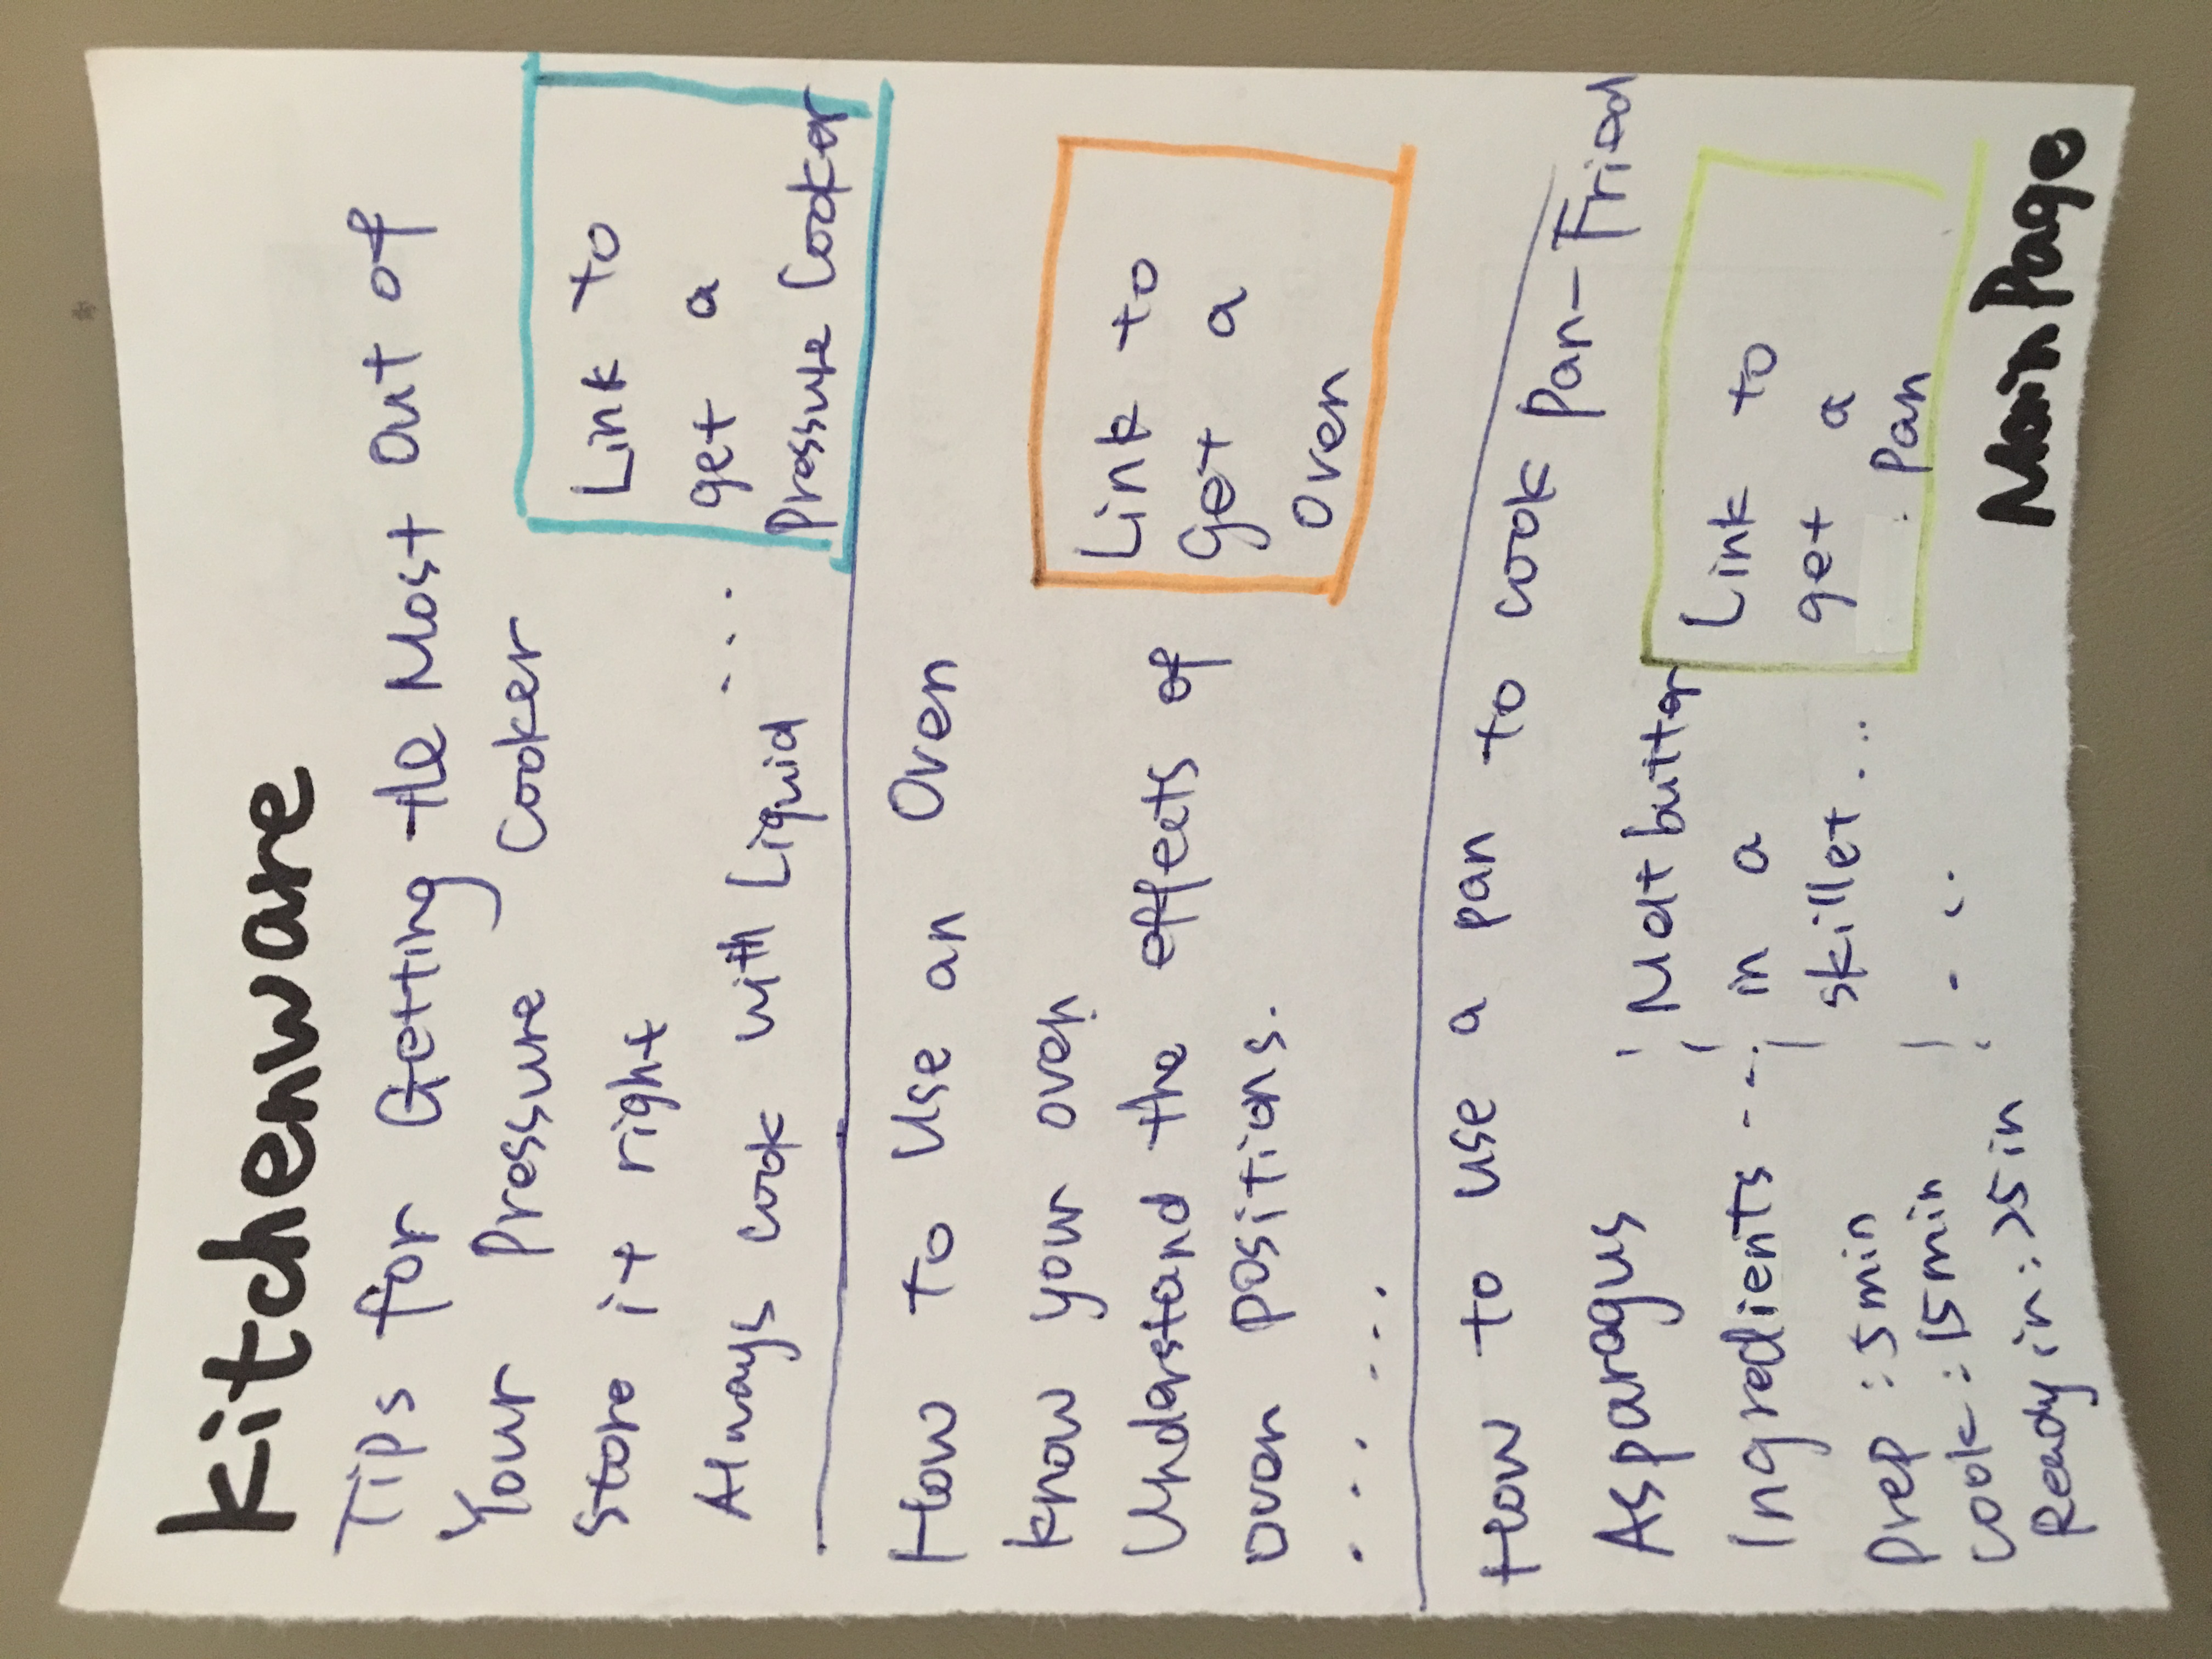 Kitchenware
Tips for Getting the Most out of
Your Pressure Cooker
Store it right
Always cook with Liquid ...
Link to
get a
Pressure Cooker
How to Use an Oven
Know your oven
Understand the effects of
oven positions.
......
Link to
get a
Oven
How to use a pan to cook Pan-Fried
Asparagus
Ingredients --
prep : 5min
Cook : 15min
Ready in : 25min
Melt butter
in a
skillet ...
Link to
get a
Pan
Main Page